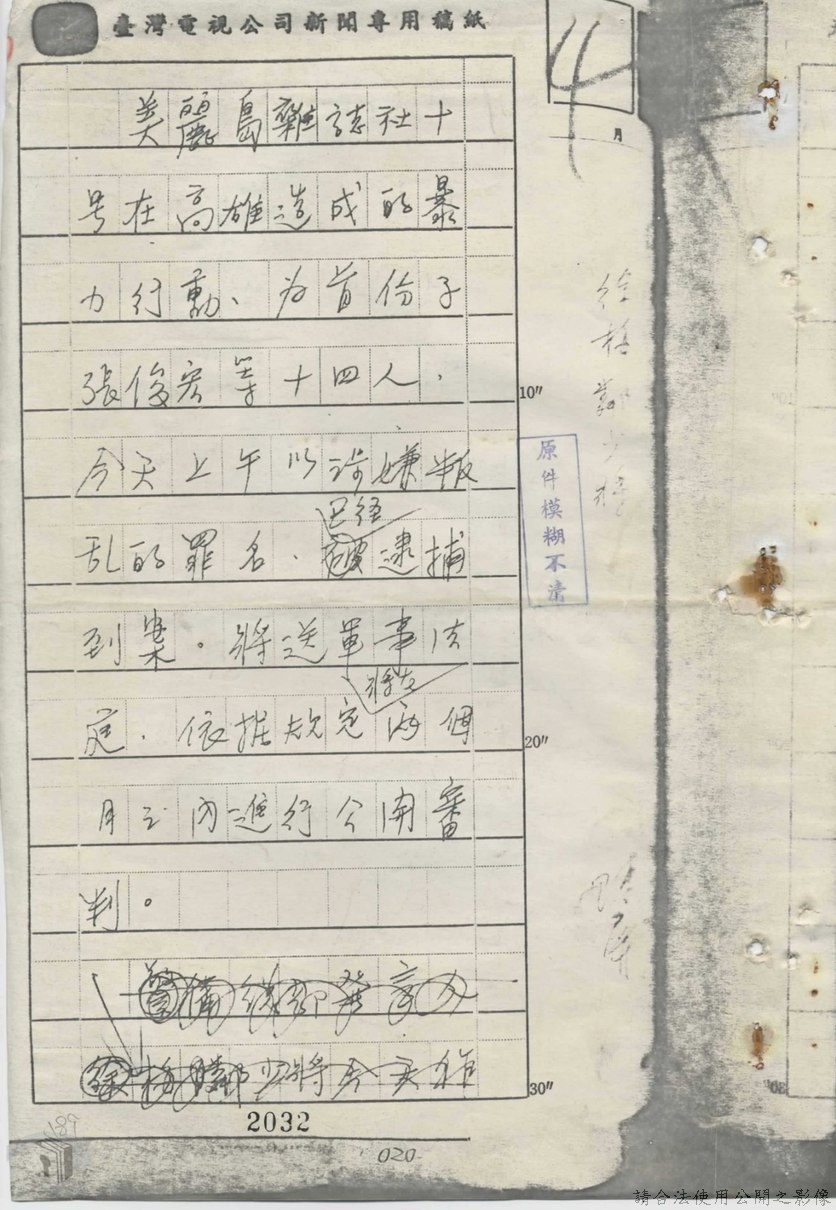 臺灣電視公司新聞專用稿紙
4
月
美麗島雜誌社十
号在高雄造成的暴
力行動、为首份子
張俊宏等十四人,
10"
今天上午以涉嫌叛
已经
乱的罪名,被逮捕
到案。將送軍事法
將在
庭,依据规定两個
20"
月之內進行公開審
判。
警備總部發言人
徐梅鄰少將今天作
30"
徐梅鄰少將
原件模糊不清
2032
189
020
請合法使用公開之影像